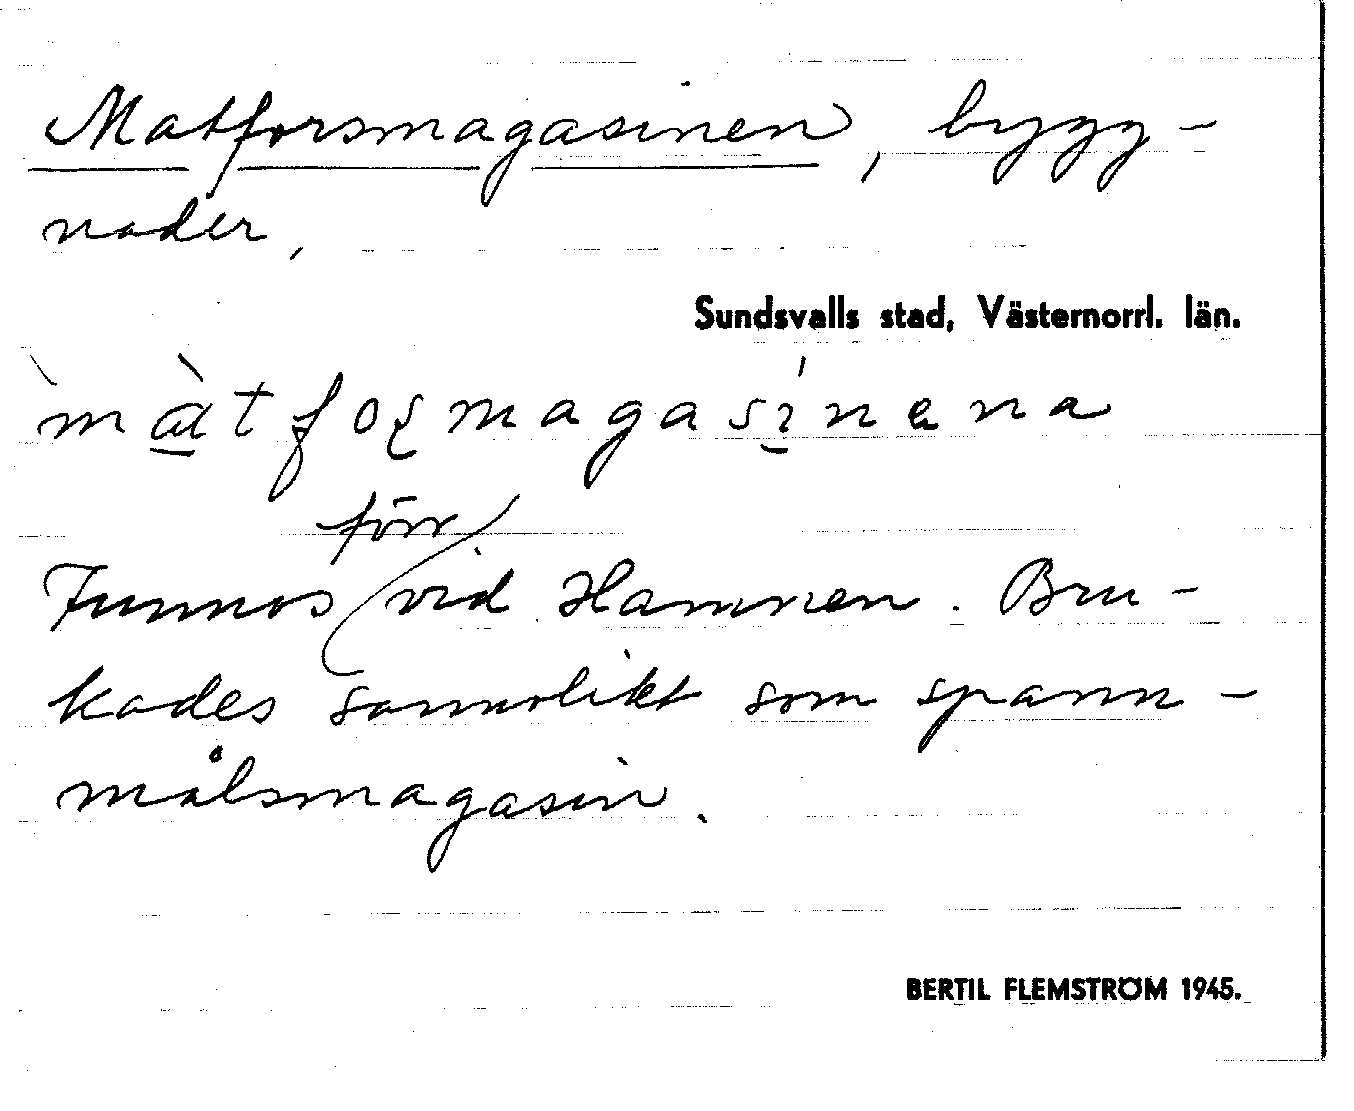 Matforsmagasinen, bygg-
nader,
Sundsvalls stad, Västernorrl. län.
màtfoʂmagasínena
förr
Funnos vid Hamnen. Bru-
kades sannolikt som spann-
målsmagasin.
BERTIL FLEMSTRÖM 1945.